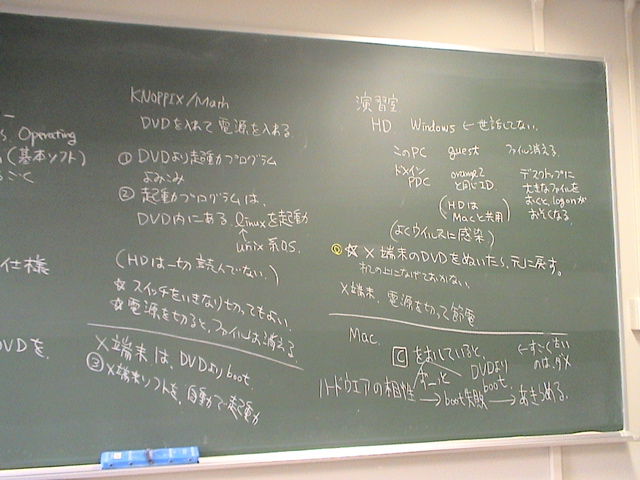 Operating
(基本ソフト)
ごく
仕様
DVDを
KNOPPIX/Math
DVDを入れて電源を入れる
① DVDより起動プログラム
よみこみ
② 起動プログラムは、
DVD内にある linuxを起動
↑
unix系OS.
(HDは一切読んでない.)
☆ スイッチをいきなり切ってもよい.
☆ 電源を切ると、ファイルは消える.
X端末は、DVDよりboot.
③ X端末ソフトを、自動で起動
演習室
HD Windows ← 世話してない.
このPC guest ファイル消える.
ドメイン orange2 デスクトップに
PDC と同じID. 大きなファイルを
(HDは おくと、logonが
Macと共用) おそくなる.
(よくウイルスに感染)
◎ ☆ X端末のDVDをぬいたら、元に戻す。
机の上になげておかない
X端末、電源を切って節電
Mac.
C をおしていると、 ←すごく古い
ずーっと DVDより のは、ダメ
boot.
ハードウエアの相性 → boot失敗 → あきらめる.